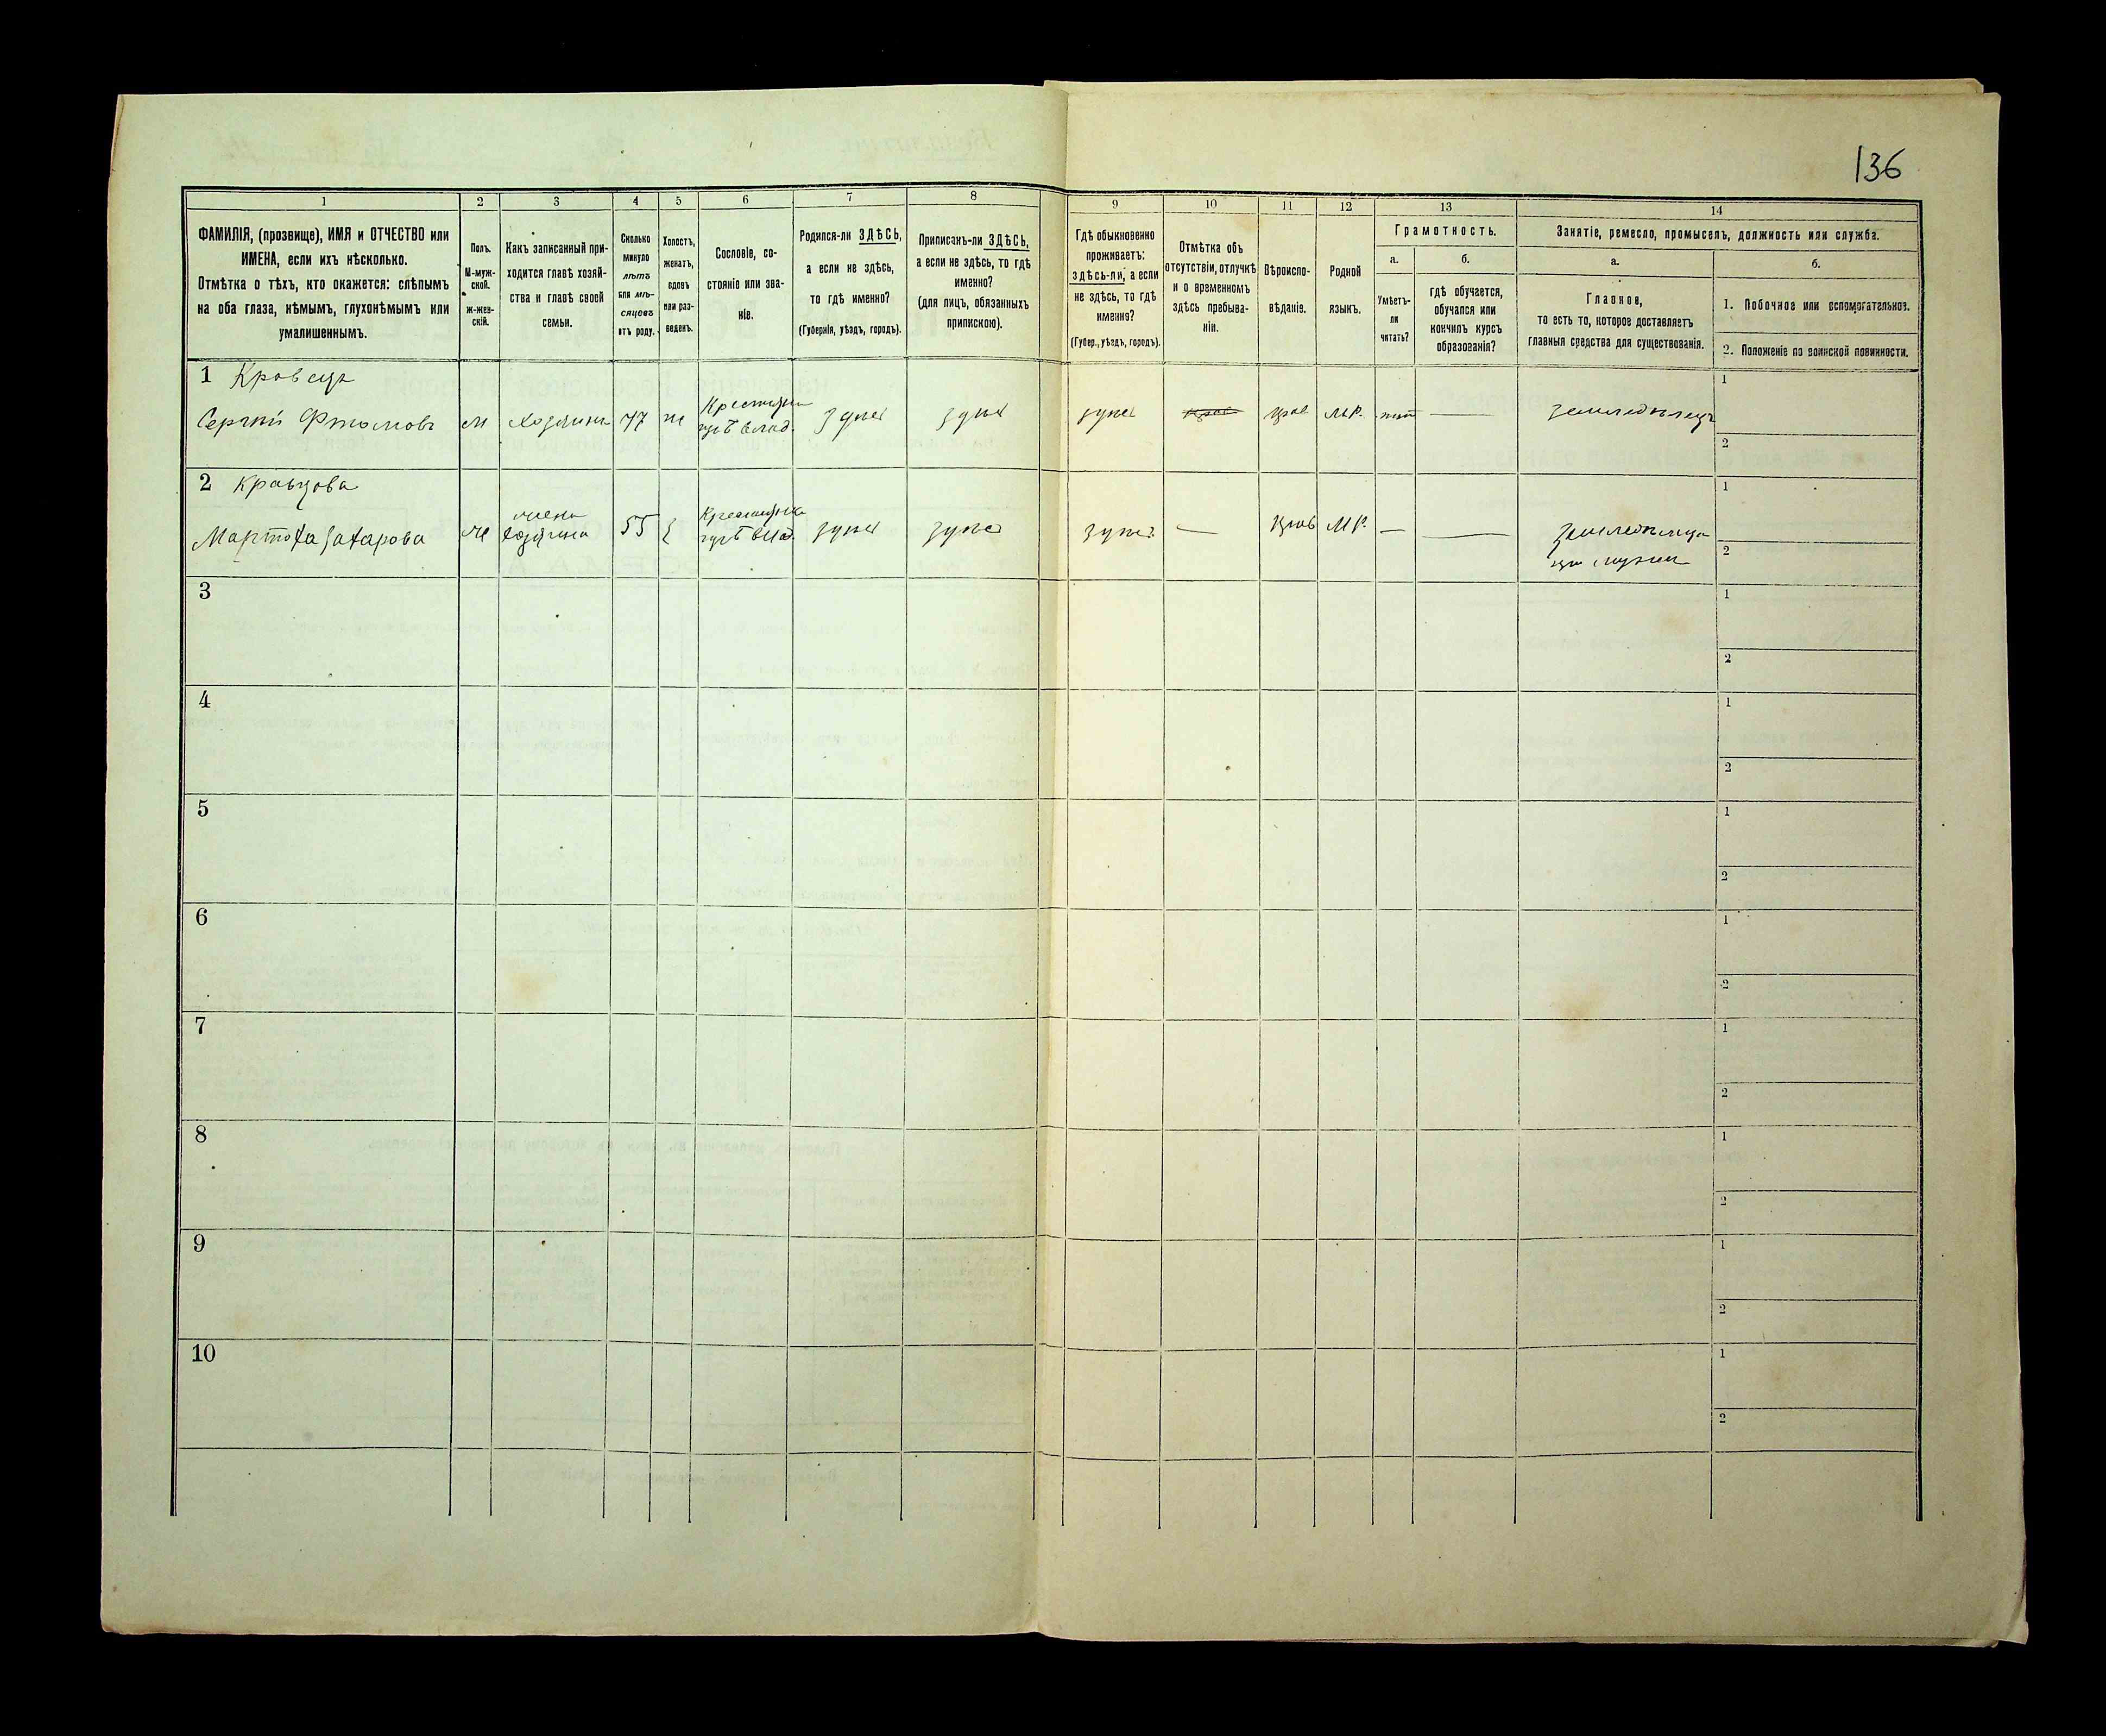 136
1
2
3
4
5
6
7
8
9
10
11
12
13
14
ФАМИЛІЯ, (прозвище), ИМЯ и ОТЧЕСТВО или
ИМЕНА, если ихъ нѣсколько.
Отмѣтка о тѣхъ, кто окажется: слѣпымъ
на оба глаза, нѣмымъ, глухонѣмымъ или
умалишеннымъ.
Полъ.
М-муж-
ской.
ж-жен-
скій.
Какъ записанный при-
ходится главѣ хозяй-
ства и главѣ своей
семьи.
Сколько
минуло
лѣтъ
или мѣ-
сяцевъ
отъ роду.
Холостъ,
женатъ,
вдовъ
или раз-
веденъ.
Сословіе, со-
стояніе или зва-
ніе.
Родился-ли ЗДѢСЬ,
а если не здѣсь,
то гдѣ именно?
(Губернія, уѣздъ, городъ).
Приписанъ-ли ЗДѢСЬ,
а если не здѣсь, то гдѣ
именно?
(для лицъ, обязанныхъ
припискою).
Гдѣ обыкновенно
проживаетъ:
здѣсь-ли, а если
не здѣсь, то гдѣ
именно?
(Губер., уѣздъ, городъ).
Отмѣтка объ
отсутствіи, отлучкѣ
и о временномъ
здѣсь пребыва-
ніи.
Вѣроиспо-
вѣданіе.
Родной
языкъ.
Грамотность.
а.
Умѣетъ-
ли
читать?
б.
гдѣ обучается,
обучался или
кончилъ курсъ
образованія?
Занятіе, ремесло, промыселъ, должность или служба.
а.
Главное,
то есть то, которое доставляетъ
главныя средства для существованія.
б.
1. Побочное или вспомогательное.
2. Положеніе по воинской повинности.
1 Кравецъ
Сергѣй м Хозяинъ 77 ж Крестьян
влад. здѣсь здѣсь здѣсь прав. М.Р. нѣтъ — земледѣлецъ
1
2
2 Кравцова
Марѳа Захарова ж жена
хозяина 55 з Крестьянка
влад. здѣсь здѣсь здѣсь — прав М.Р. — — земледѣлица
при мужи
1
2
3
1
2
4
1
2
5
1
2
6
1
2
7
1
2
8
1
2
9
1
2
10
1
2